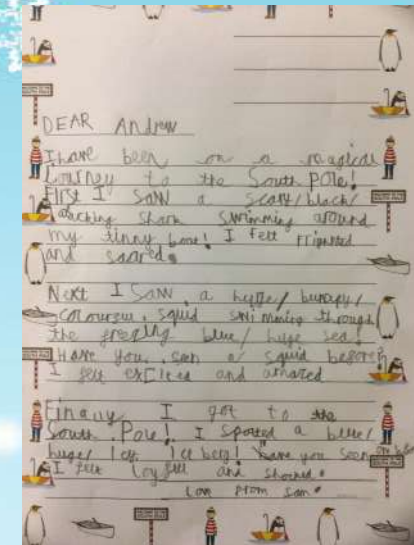 DEAR Andrew
I have been on a magical
Journey to the South Pole!
First I saw a scary/black/
shark swimming around
my tinny boat! I felt
and scared.
Next I saw, a hugge/ bumpy/
squid swimming through
the freezing blue/ huge sea!
Have you, seen a squid before?
I felt excited and amazed
Finally I got to the
South Pole! I spotted a blue/
huge/ Icy, Ice berg! have you seen one
I felt Joyfull and shocked.
Love From Sam.